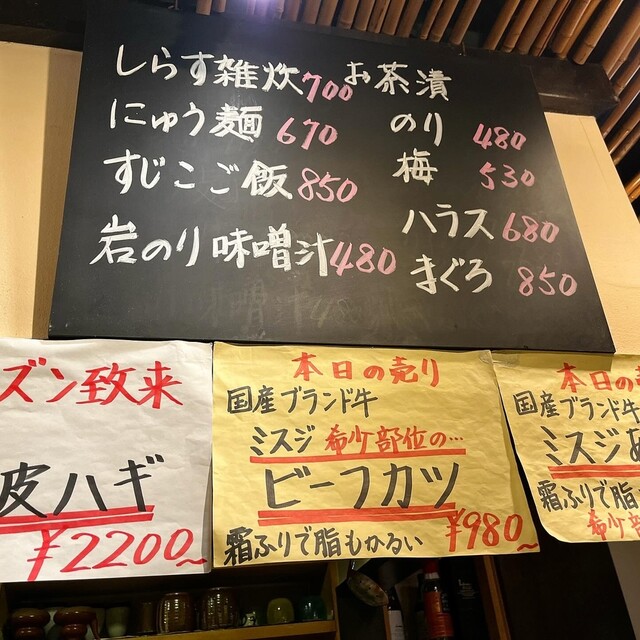 しらす雑炊 700
にゅう麺 670
すじこご飯 850
岩のり味噌汁 480
お茶漬
のり 480
梅 530
ハラス 680
まぐろ 850
ズン致来
皮ハギ
¥2200~
本日の売り
国産ブランド牛
ミスジ 希少部位の…
ビーフカツ
¥980~
霜ふりで脂もかるい
本日の
国産ブランド牛
ミスジ
霜ふりで脂
希少